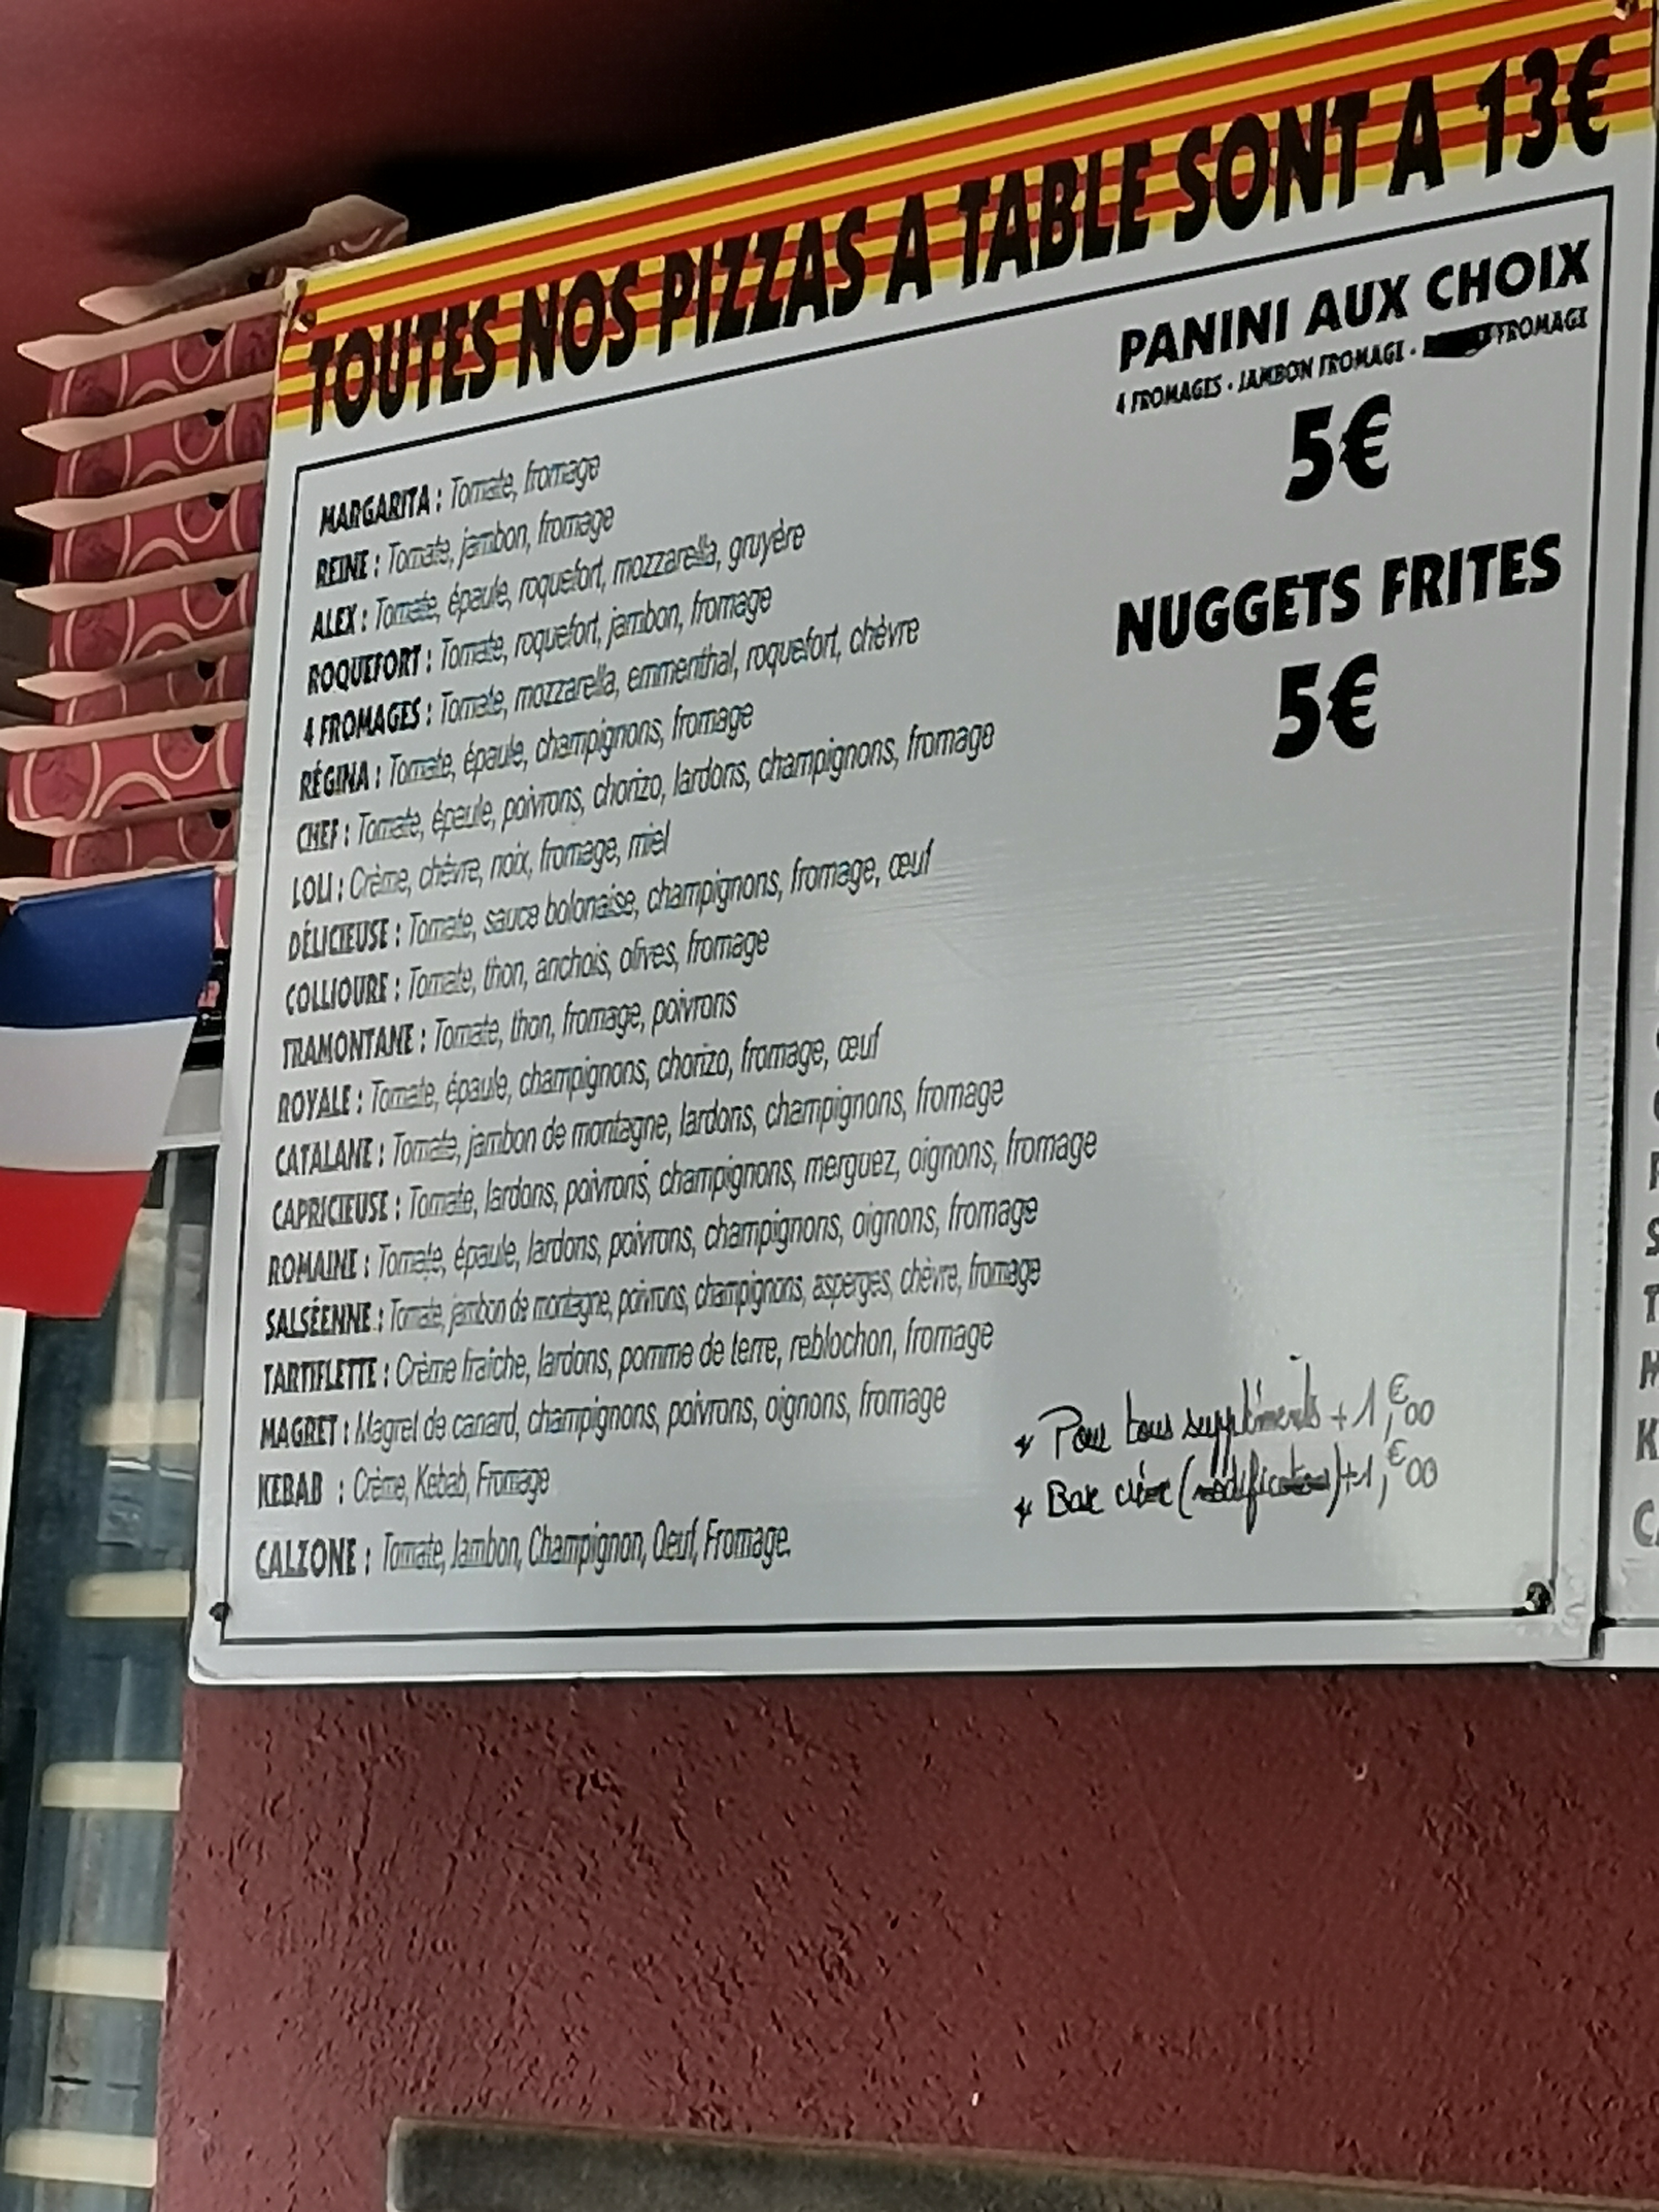 TOUTES NOS PIZZAS A TABLE SONT A 13€
MARGARITA : Tomate, fromage
REINE : Tomate, jambon, fromage
ALEX : Tomate, épaule, roquefort, mozzarella, gruyère
ROQUEFORT : Tomate, roquefort, jambon, fromage
4 FROMAGES : Tomate, mozzarella, emmenthal, roquefort, chèvre
RÉGINA : Tomate, épaule, champignons, fromage
CHEF : Tomate, épaule, poivrons, chorizo, lardons, champignons, fromage
LOLI : Crème, chèvre, noix, fromage, miel
DÉLICIEUSE : Tomate, sauce bolonaise, champignons, fromage, œuf
COLLIOURE : Tomate, thon, anchois, olives, fromage
TRAMONTANE : Tomate, thon, fromage, poivrons
ROYALE : Tomate, épaule, champignons, chorizo, fromage, œuf
CATALANE : Tomate, jambon de montagne, lardons, champignons, fromage
CAPRICIEUSE : Tomate, lardons, poivrons, champignons, merguez, oignons, fromage
ROMAINE : Tomate, épaule, lardons, poivrons, champignons, oignons, fromage
SALSÉENNE : Tomate, jambon de montagne, poivrons, champignons, asperges, chèvre, fromage
TARTIFLETTE : Crème fraiche, lardons, pomme de terre, reblochon, fromage
MAGRET : Magret de canard, champignons, poivrons, oignons, fromage
KEBAB : Crème, Kebab, Fromage
CALZONE : Tomate, Jambon, Champignon, Oeuf, Fromage.
PANINI AUX CHOIX
4 FROMAGES - JAMBON FROMAGE - FROMAGE
5€
NUGGETS FRITES
5€
* Pour tous suppléments +1,€00
* Base crème (modification) +1,€00